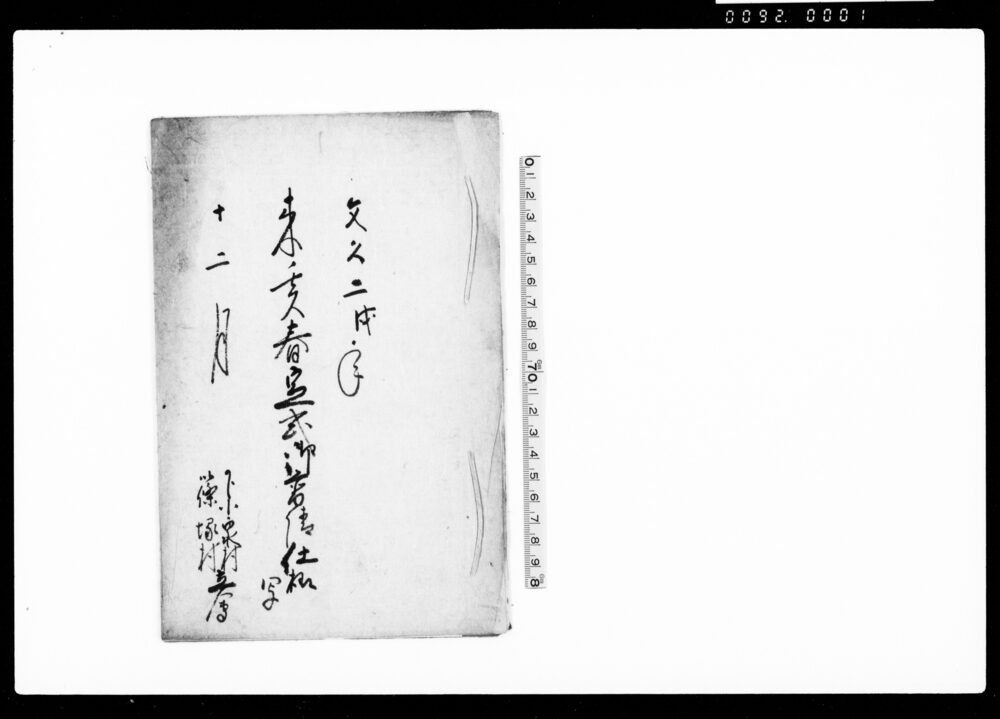 0092. 0001
文久二戌年
来ル亥春定式御普請仕様
写
十二月
泉村
篠塚村
0 1 2 3 4 5 6 7 8 9 10 1 2 3 4 5 6 7 8 9